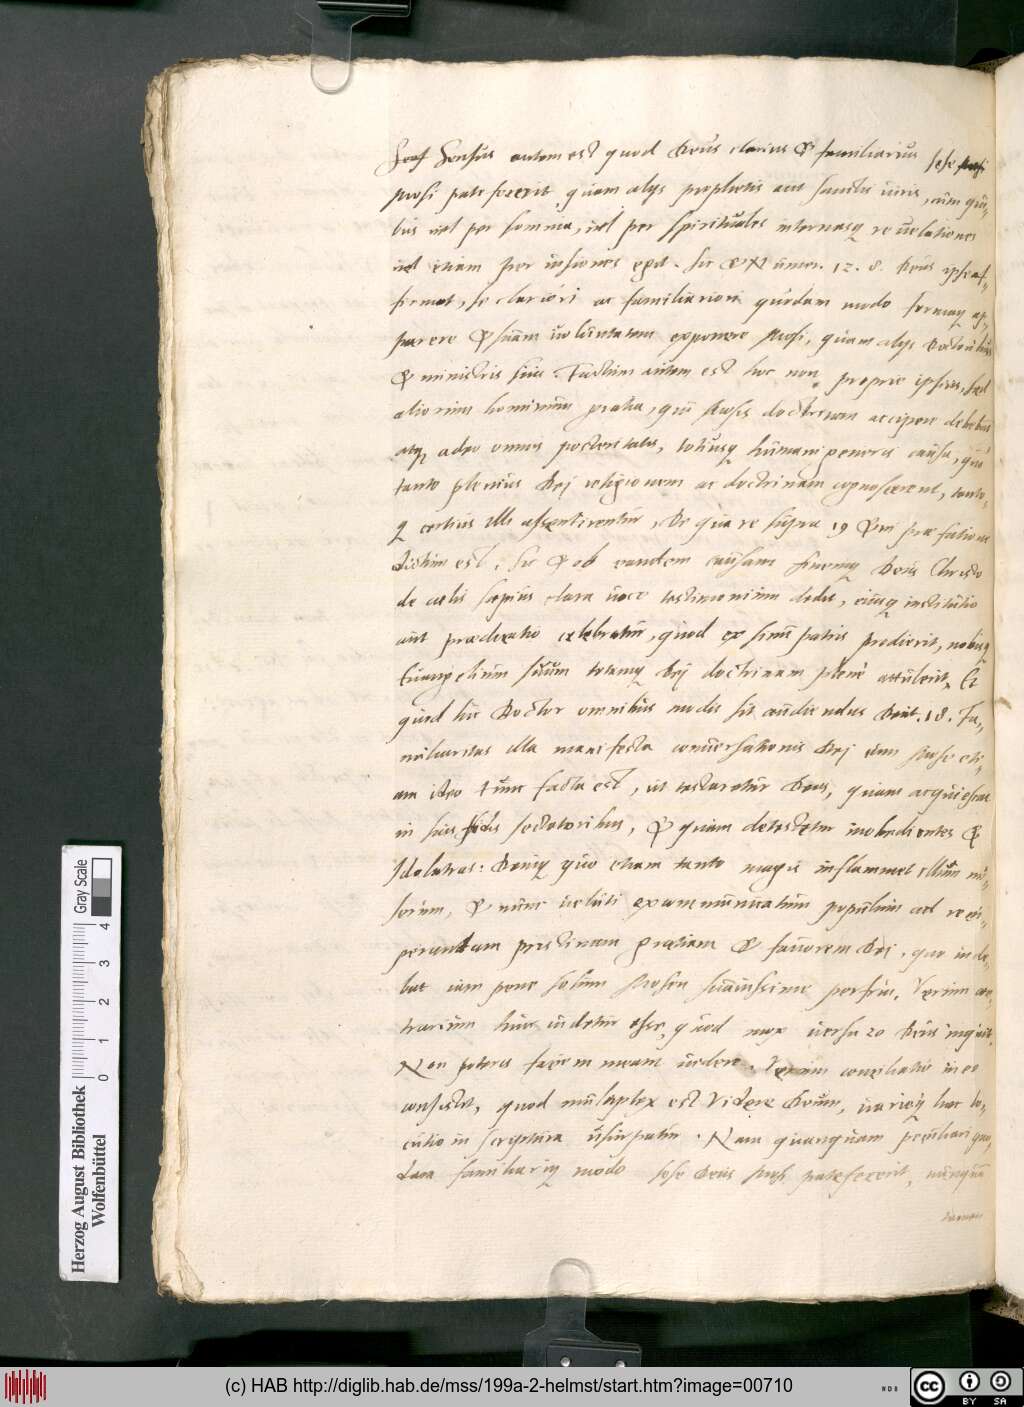 Hoc sensus autem est quod Deus clarius & familiarius sese
Mosi patefecerit, quam alijs prophetis aut sanctis uiris, cum qui-
bus uel per somnia, uel per spirituales internasq reuelationes
uel etiam per uisiones egit. Sic & Numer. 12. 8. Deus ipse af-
firmat, se clariori ac familiariori quodam modo formaq ap-
parere & suam uoluntatem exponere Mosi, quam alijs Doctoribus
& ministris suis. Factum autem est hoc non proprie ipsius, sed
aliorum hominum gratia, qui Mosis doctrinam accipere debebant
atq adeo omnis posteritatis, totiusq humani generis causa, quo
tanto plenius Dej religionem ac doctrinam cognoscerent, tanto-
q certius illi assentirentur, De qua re supra 19 & in praefatione
dictum est. Sic & ob eandem causam finemq Deus Christo
de caelis saepius clara uoce testimonium dedit, eiusq institutio
aut praedicatio celebratur, quod ex sinu patris prodierit, nobisq
Euangelium suum totamq Dej doctrinam plene attulerit, Et
quod hic Doctor omnibus modis sit audiendus Deut. 18. Fa-
miliaritas illa manifesta conuersationis Dej cum Mose eti-
am ideo tunc facta est, ut testaretur Deus, quam acquiescat
in suis fidis sectatoribus, & quam detestetur inobedientes &
Idolatras: Deniq quo etiam tanto magis inflammet illum mi-
serum, & nunc ueluti excommunicatum populum ad reci-
perandam pristinam gratiam & fauorem Dej, quo uide-
bat iam pene solum Mosen suauissime perfrui. Verum con-
trarium huic uidetur esse, quod mox uersu 20 Deus inquit
Non poteris faciem meam uidere. Verum conciliatio in eo
consistit, quod multiplex est Videre Deum, uarieq haec lo-
cutio in scriptura usurpatur. Nam quanquam peculiari quo-
dam familiariq modo sese Deus Mosi patefecerit, nunquam
tamen
Herzog August Bibliothek
Wolfenbüttel
Gray Scale
0 1 2 3 4
(c) HAB http://diglib.hab.de/mss/199a-2-helmst/start.htm?image=00710
NDB
cc BY SA